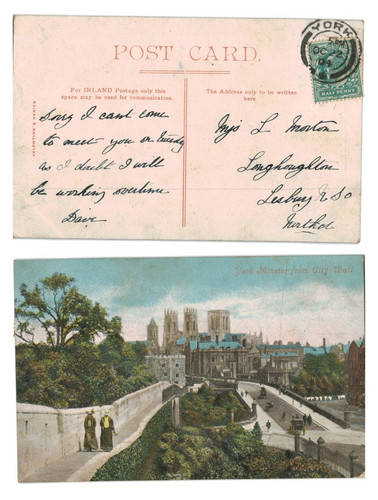 POST CARD.
For INLAND Postage only this
space may be used for communication.
The Address only to be written
here
VALENTINE'S SERIES
YORK
HALF PENNY
Sorry I cant come
to meet you on
as I doubt I will
be working overtime
Dave
Miss L Morton
Longhoughton
Lesbury RSO
Northd
York Minster from City Wall